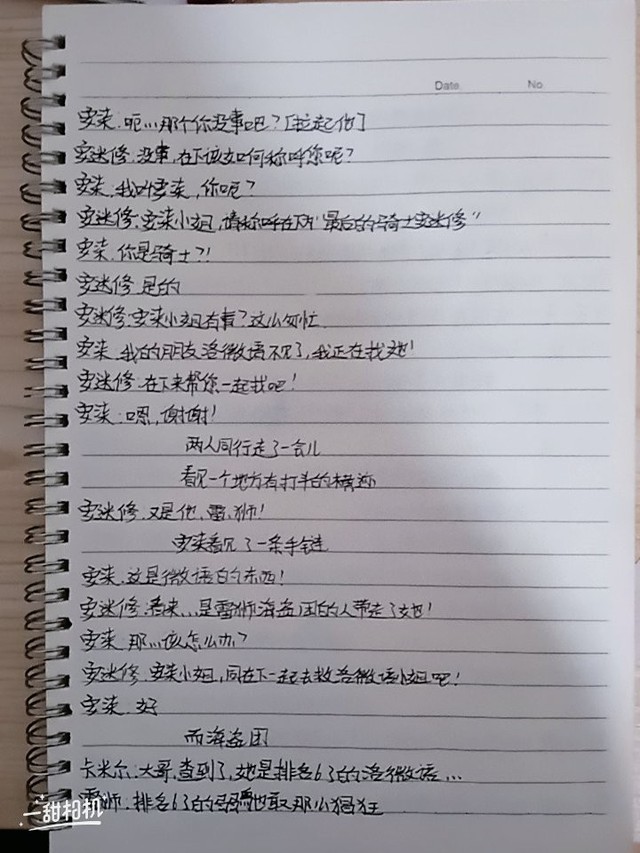 Date No
安柒:呃...那个你没事吧?[拉起他]
安迷修:没事,在下该如何称呼您呢?
安柒:我叫安柒,你呢?
安迷修:安柒小姐,请称呼在下"最后的骑士安迷修"
安柒:你是骑士?!
安迷修:是的
安迷修:安柒小姐有事?这么匆忙
安柒:我的朋友洛微语不见了,我正在找她!
安迷修:在下来帮你一起找吧!
安柒:嗯,谢谢!
两人同行走了一会儿
看见一个地方有打斗的横迹
安迷修:又是他,雷狮!
安柒看见了一条手链
安柒:这是微语的东西!
安迷修:看来...是雷狮海盗团的人带走了她!
安柒:那...该怎么办?
安迷修:安柒小姐,同在下一起去救洛微语小姐吧!
安柒:好
而海盗团
卡米尔:大哥,查到了,她是排名63的洛微语...
雷狮:排名63的 也取那小猖狂
一甜相机